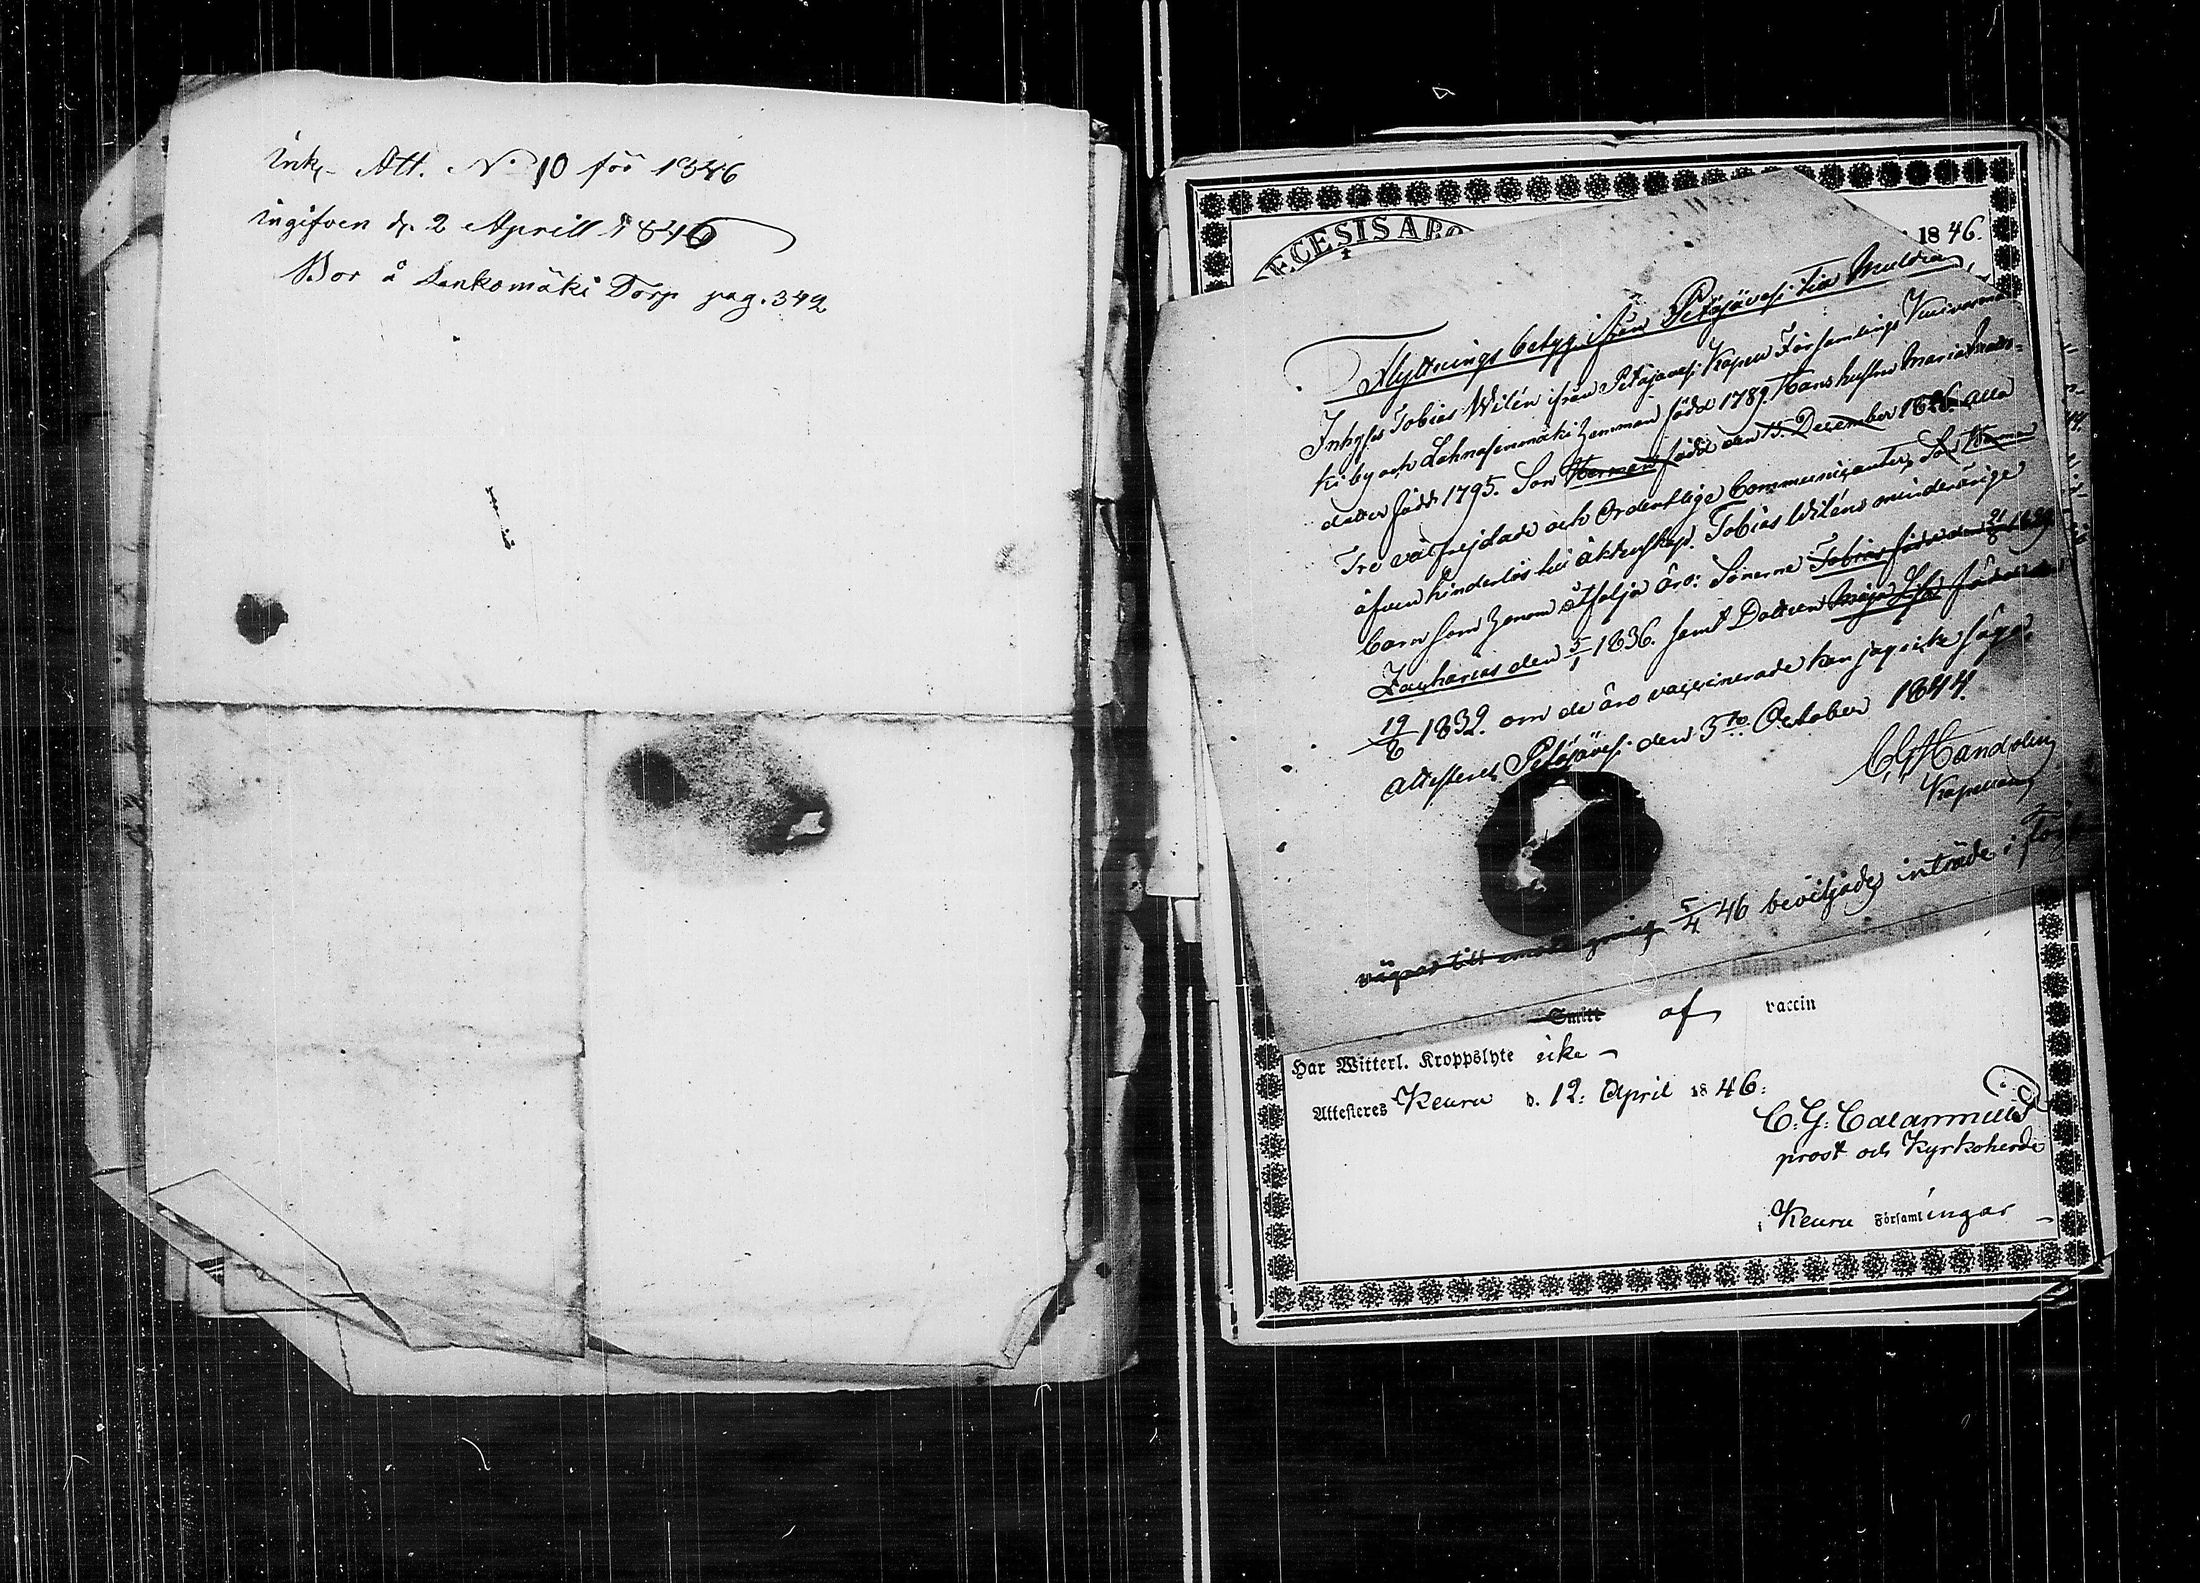 Ink. Att. No 10 för 1846
ingifven d. 2 Aprill 1846
Bor å Lankomäki Torp pag. 342
ECESIS ABO
1846.
Flyttnings betyg ifrån Petäjävesi till Muldia,
Inhyses Tobias Wilén ifrån Petäjävesi Kapell Församlings Kuivasmä
ki by och Lahnasenmäki hemman född 1789. Hans hustru Maria Matts-
dotter född 1795. Son Herman född den 15 December 1826. alla
Tre välfrejdade och Ordentlige Communicanter, Son Herman
äfven hinderlös till äktenskap. Tobias Wiléns minderårige
barn som honom åtfölja äro: Sönerne Tobias född den 1829
Zacharias den 5/1 1836. samt Dottren Maja Lisa född den
19/6 1832. om de äro vaccinerade kan jag icke säga.
attesteras Petäjävesi den 5te October 1844.
C G Handolin
Kapellan
vägras till emottagning 5/4 46 beviljades inträde i
Smitt af vaccin
Har Witterl. Kroppslyte icke
Attesteres Keuru d. 12: April 1846:
C. G. Calamnius
prost och Kyrkoherde
i Keuru Församlingar